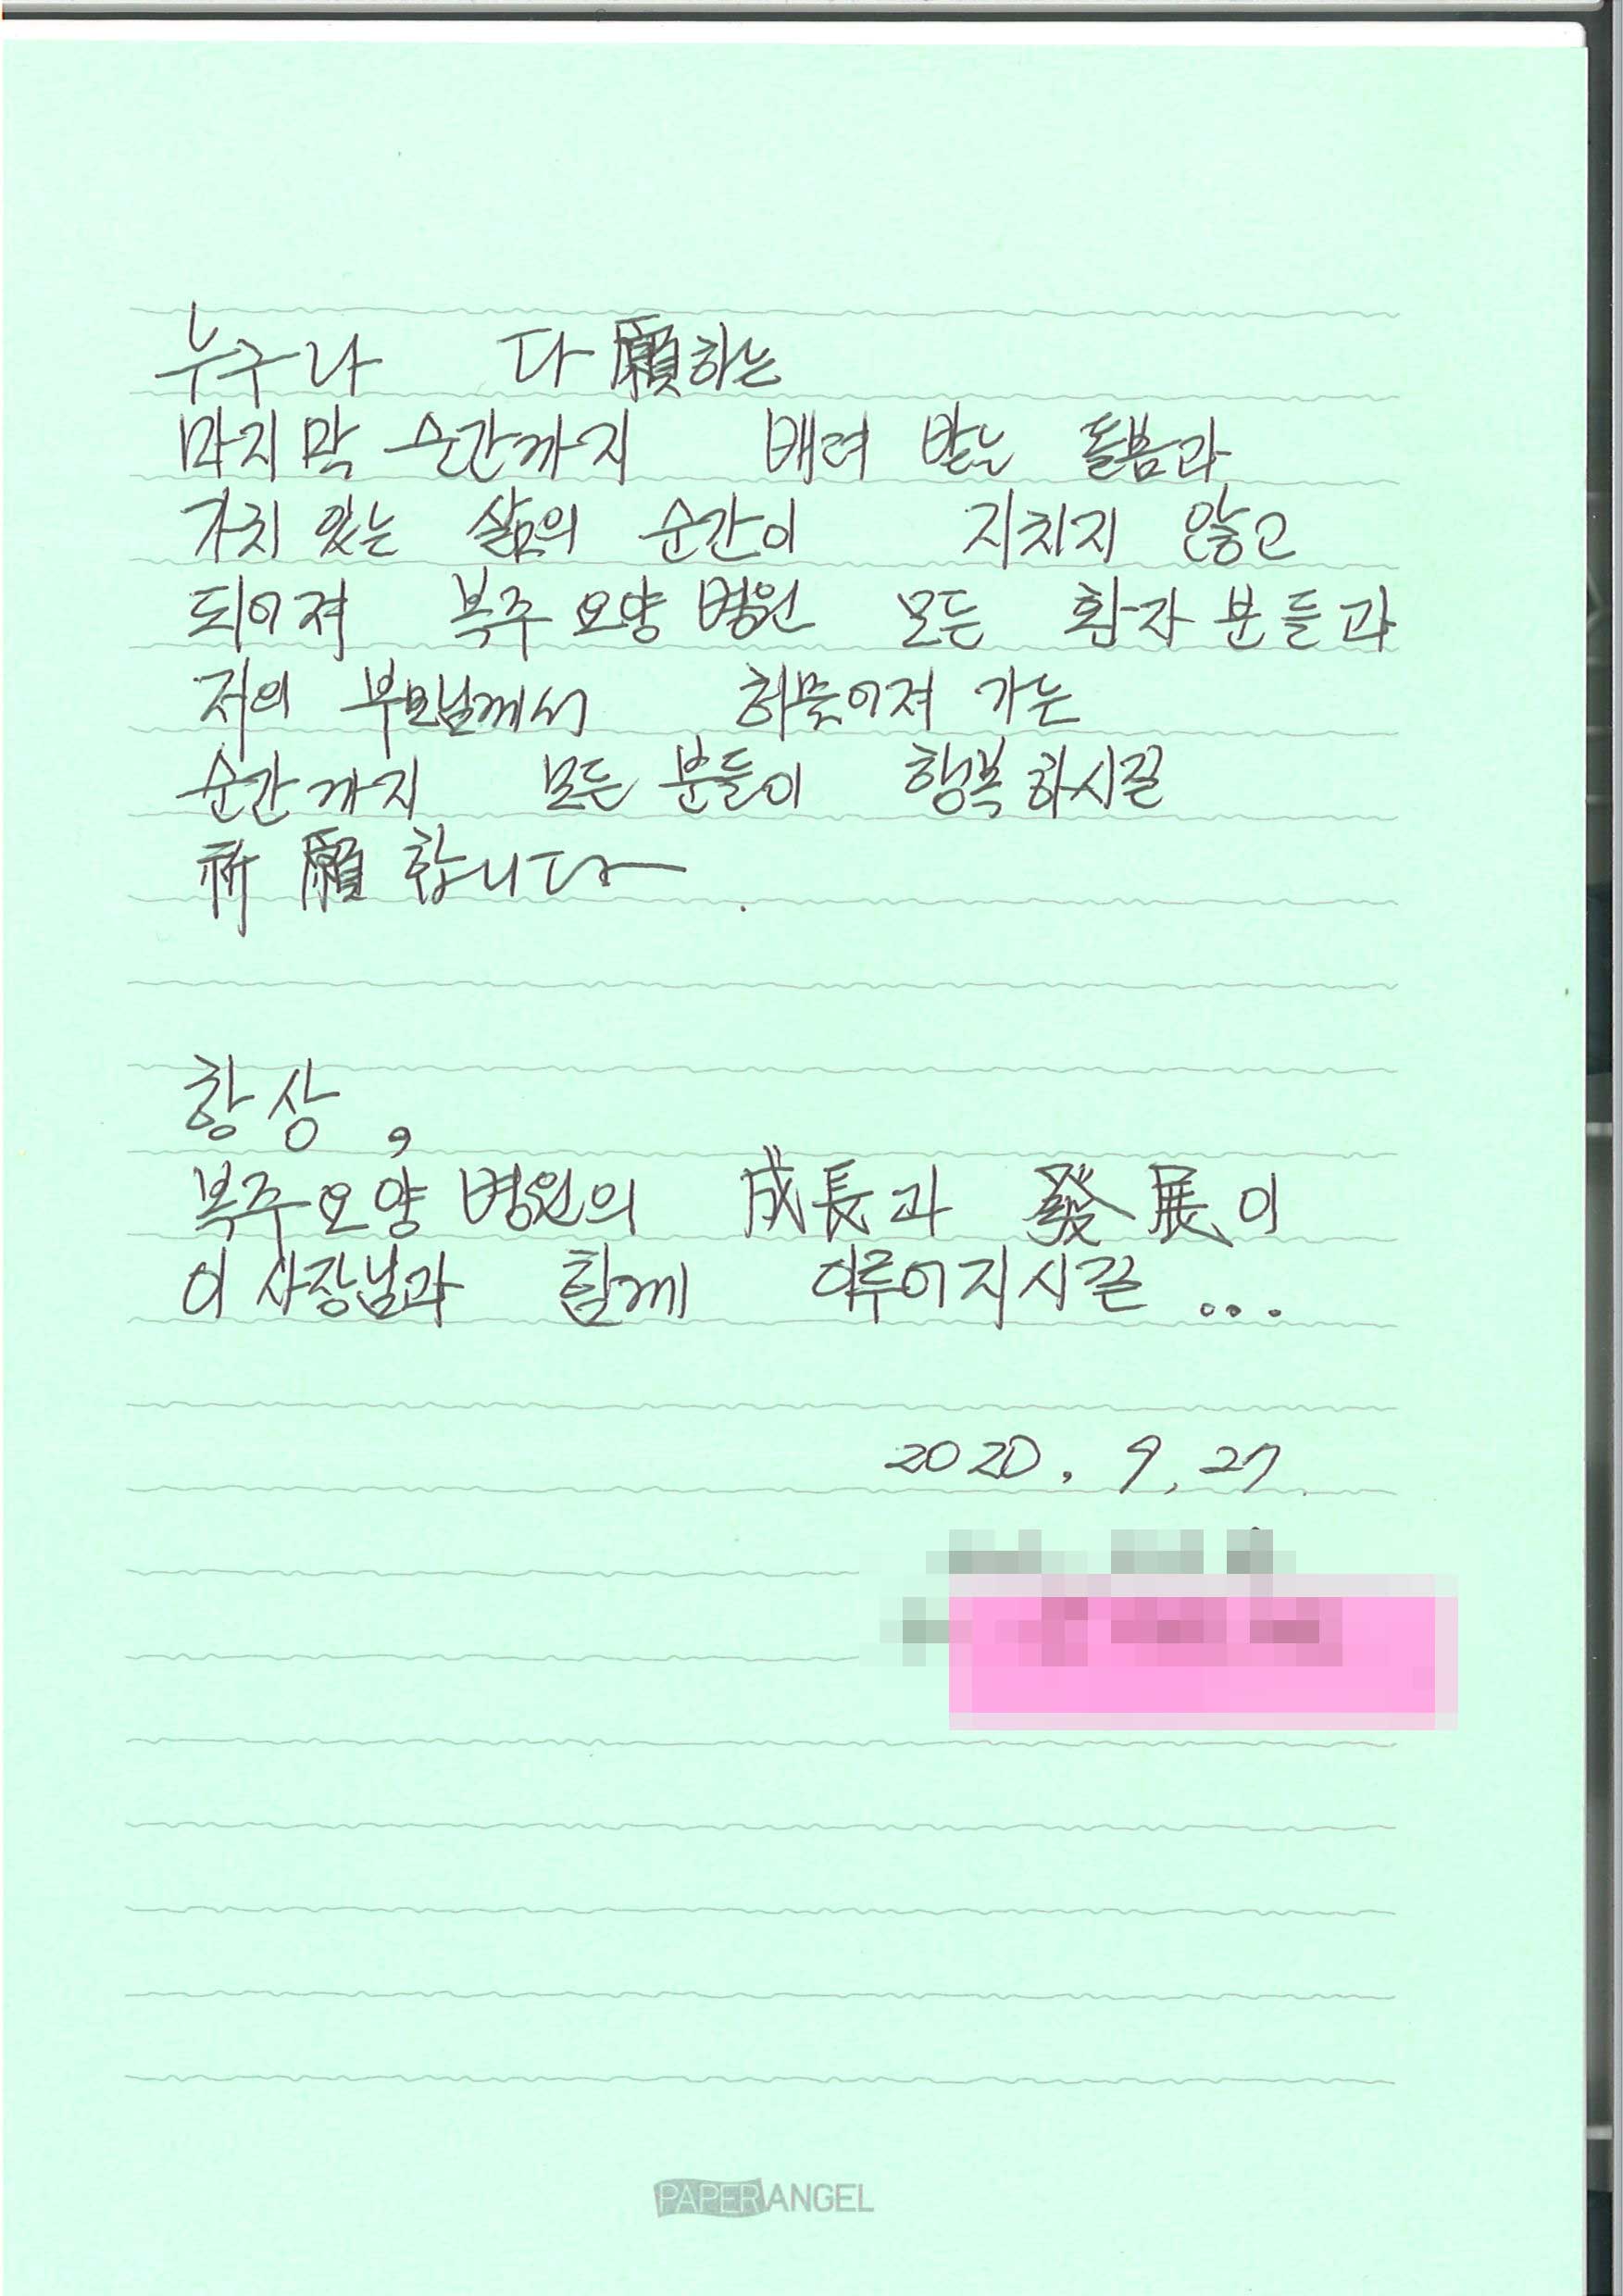 누구나 다 願하는
마지막 순간까지 배려 받는 돌봄과
가치 있는 삶의 순간이 지치지 않고
되어져 복주요양병원 모든 환자분들과
저의 부모님께서 허물어져 가는
순간까지 모든 분들이 행복하시길
祈願합니다
항상,
복주요양병원의 成長과 發展이
이사장님과 함께 이루어지시길 ...
2020. 9. 27.
PAPER ANGEL